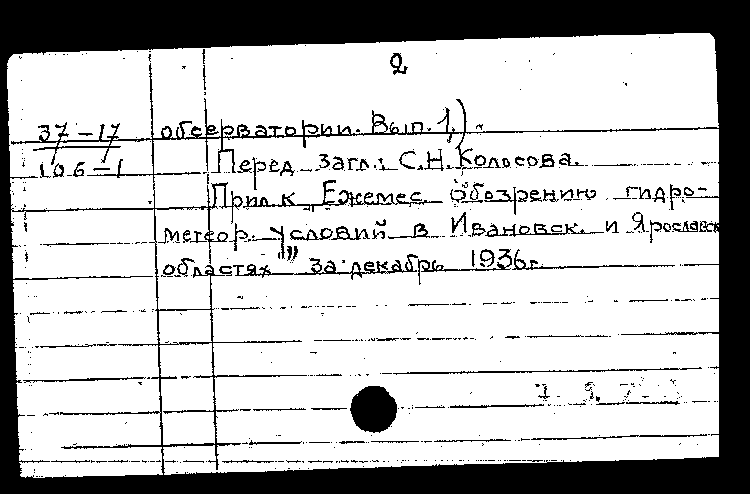 2
37-17 обсерватории. Вып. 1,).
106-1 Перед загл.: С.Н. Колосова.
Прил. к „Ежемес. обозрению гидро-
метеор. условий в Ивановск. и Ярославск
областях" за декабрь 1936г.